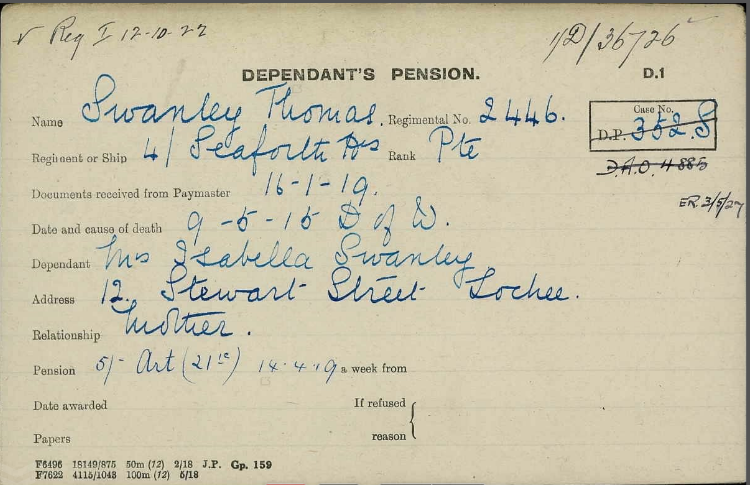 ✓ Reg I 12-10-22
1/D/36726 ✓
DEPENDANT'S PENSION.
D.1
Name Swanley Thomas. Regimental No. 2446.
Case No.
D.P. 352.S
Regiment or Ship 4/ Seaforth Hrs Rank Pte
D.A.O. 4885
Documents received from Paymaster 16-1-19.
ER. 3/5/27
Date and cause of death 9-5-15 D of W.
Dependant Mrs Isabella Swanley
Address 12. Stewart Street Lochee.
Relationship Mother.
Pension 5/- Art (21 1c) 14.4.19 a week from
Date awarded If refused
Papers reason
F6496 18149/875 50m (12) 2/18 J.P. Gp. 159
F7622 4115/1043 100m (12) 5/18